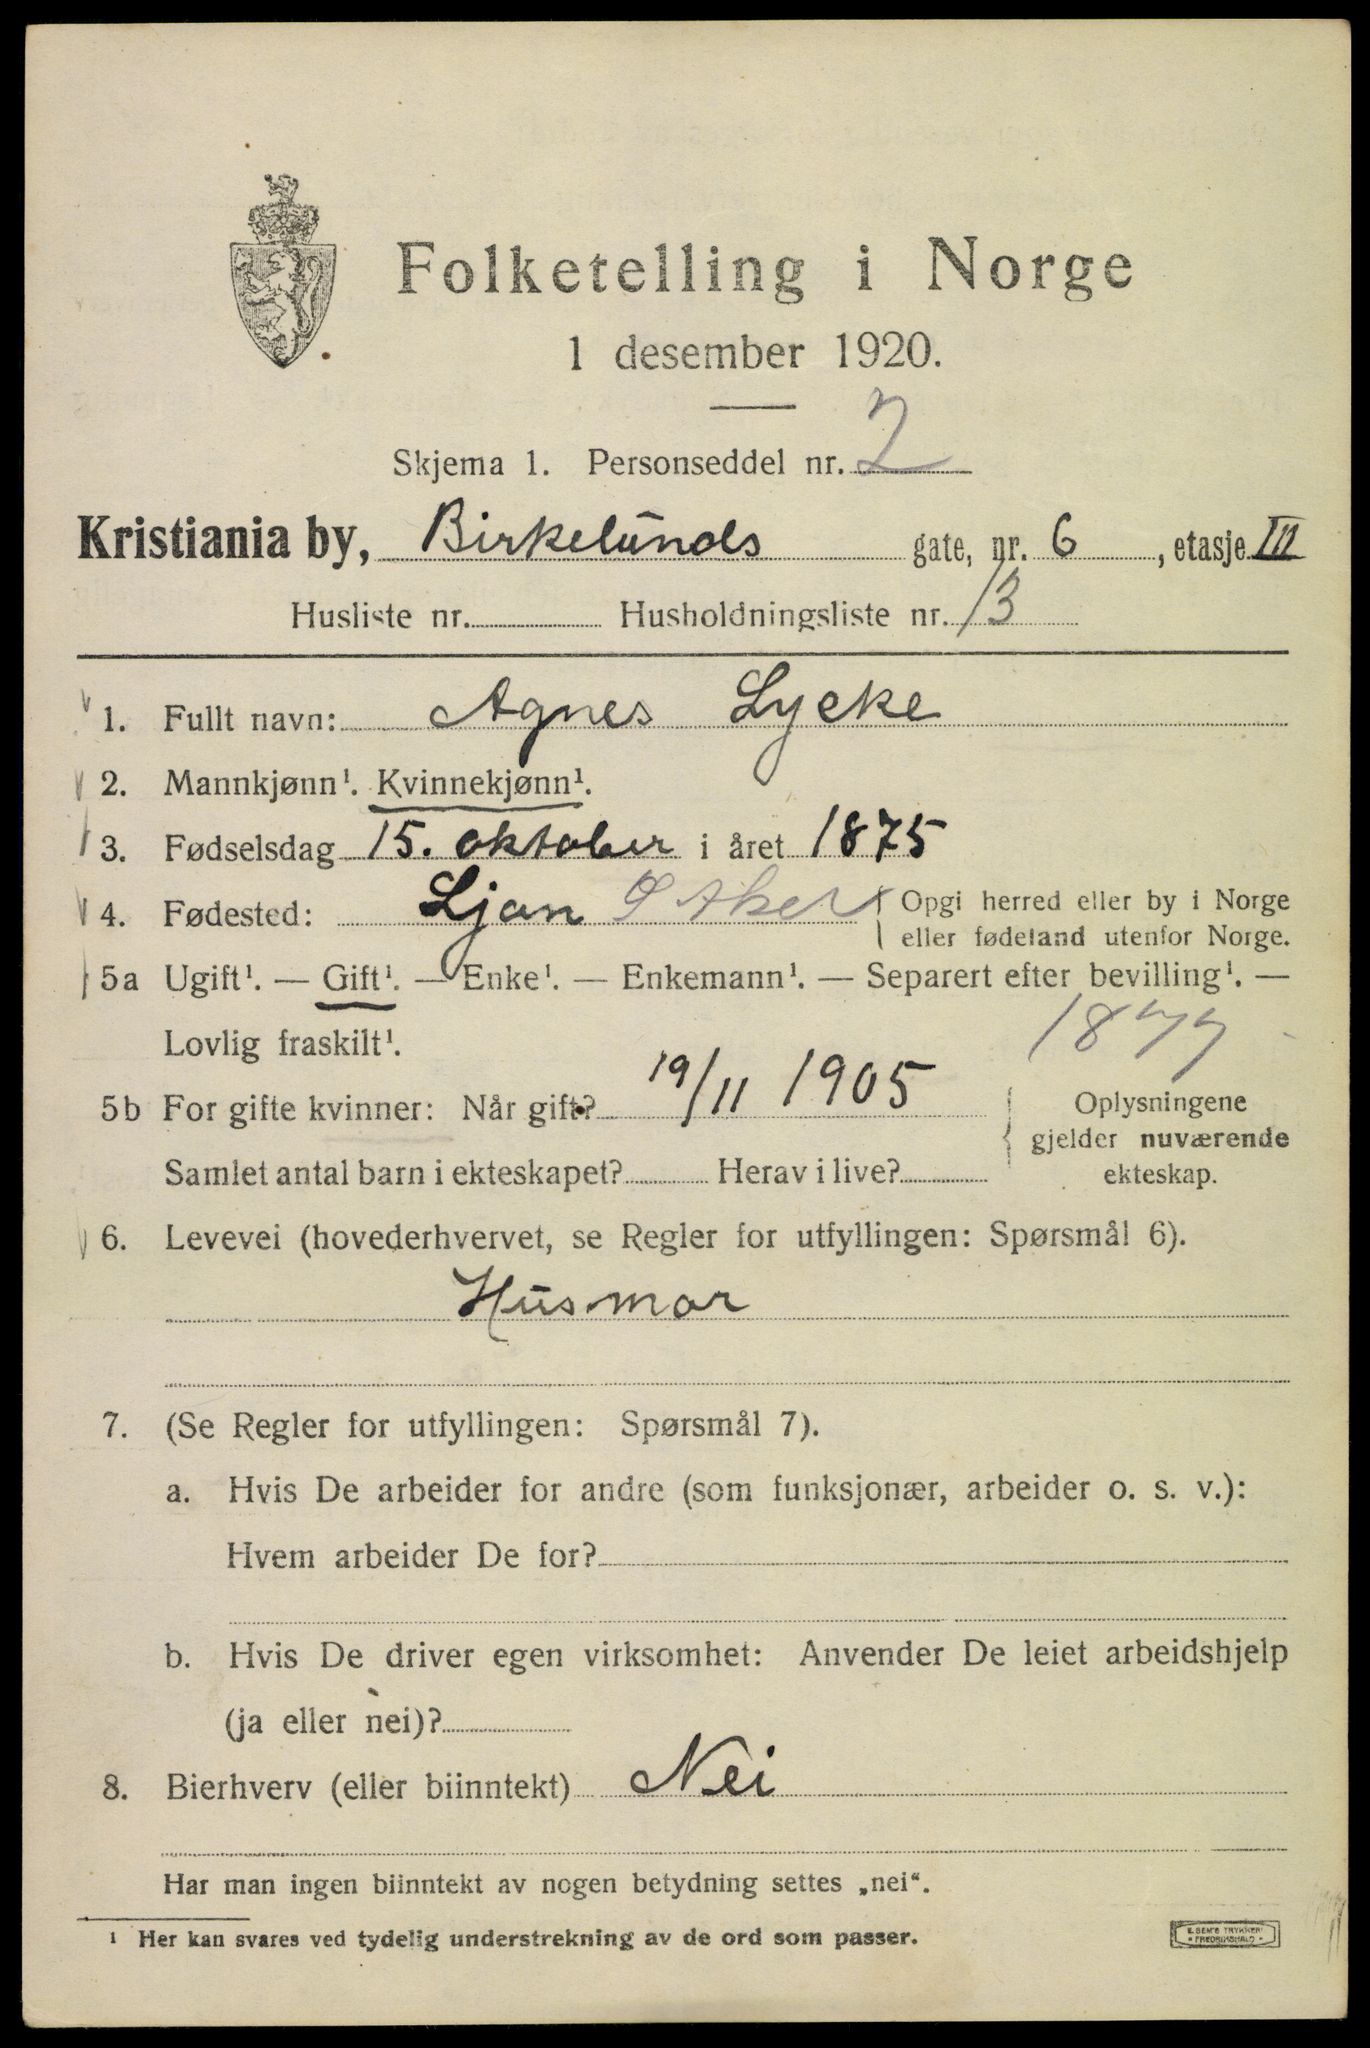 Folketelling i Norge
1 desember 1920.
Skjema 1. Personseddel nr. 2
Kristiania by, Birkelunds gate, nr. 6, etasje III
Husliste nr. Husholdningsliste nr. 13
1. Fullt navn: Agnes Lycke
2. Mannkjønn¹. Kvinnekjønn¹.
3. Fødselsdag 15. oktober i året 1875
4. Fødested: Ljan Aker Opgi herred eller by i Norge
eller fødeland utenfor Norge.
5a Ugift¹. — Gift¹. — Enke¹. — Enkemann¹. — Separert efter bevilling¹. —
Lovlig fraskilt¹.
1877
5b For gifte kvinner: Når gift? 19/11 1905
Oplysningene
gjelder nuværende
ekteskap.
Samlet antal barn i ekteskapet? Herav i live?
6. Levevei (hovederhvervet, se Regler for utfyllingen: Spørsmål 6).
Husmor
7. (Se Regler for utfyllingen: Spørsmål 7).
a. Hvis De arbeider for andre (som funksjonær, arbeider o. s. v.):
Hvem arbeider De for?
b. Hvis De driver egen virksomhet: Anvender De leiet arbeidshjelp
(ja eller nei)?
8. Bierhverv (eller biinntekt) Nei
Har man ingen biinntekt av nogen betydning settes „nei“.
¹ Her kan svares ved tydelig understrekning av de ord som passer.
E. SEM'S TRYKKERI
FREDRIKSHALD